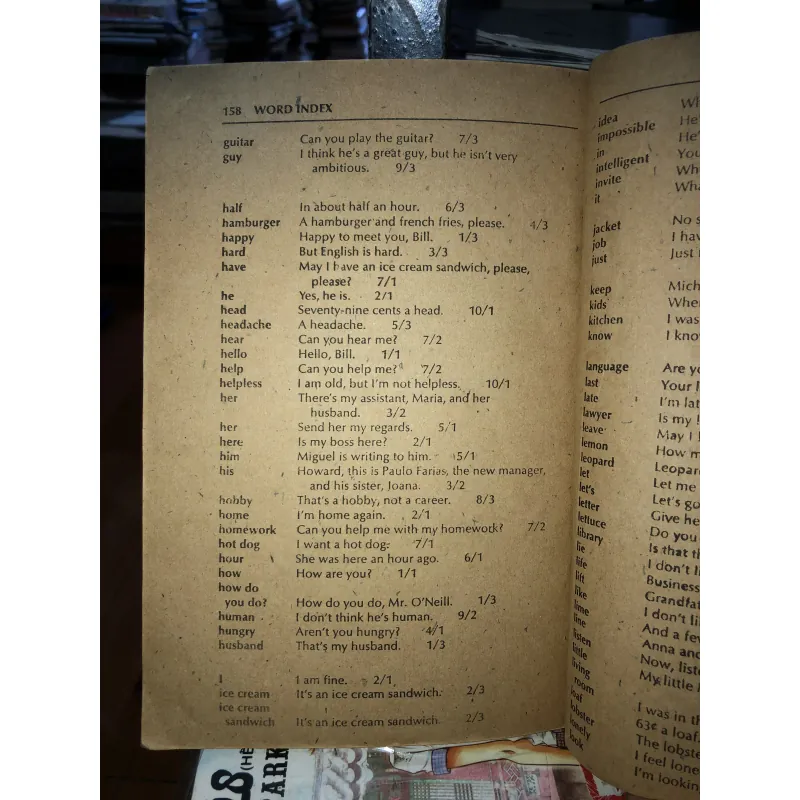 158 WORD INDEX
guitar Can you play the guitar? 7/3
guy I think he's a great guy, but he isn't very
ambitious. 9/3
half In about half an hour. 6/3
hamburger A hamburger and french fries, please. 4/3
happy Happy to meet you, Bill. 1/3
hard But English is hard. 3/3
have May I have an ice cream sandwich, please,
please? 7/1
he Yes, he is. 2/1
head Seventy-nine cents a head. 10/1
headache A headache. 5/3
hear Can you hear me? 7/2
hello Hello, Bill. 1/1
help Can you help me? 7/2
helpless I am old, but I'm not helpless. 10/1
her There's my assistant, Maria, and her
husband. 3/2
her Send her my regards. 5/1
here Is my boss here? 2/1
him Miguel is writing to him. 5/1
his Howard, this is Paulo Farias, the new manager,
and his sister, Joana. 3/2
hobby That's a hobby, not a career. 8/3
home I'm home again. 2/1
homework Can you help me with my homework? 7/2
hot dog I want a hot dog. 7/1
hour She was here an hour ago. 6/1
how How are you? 1/1
how do
you do? How do you do, Mr. O'Neill. 1/3
human I don't think he's human. 9/2
hungry Aren't you hungry? 4/1
husband That's my husband. 1/3
I I am fine. 2/1
ice cream It's an ice cream sandwich. 2/3
ice cream
sandwich It's an ice cream sandwich. 2/3
idea
impossible He
in He's
intelligent You
invite
it
jacket No
job I
just Just
keep
kids
kitchen I was
know I
language Are
last Your
late I'm
lawyer Is my
leave May I
lemon How
leopard
let Let me
let's Let's
letter Give
lettuce Do you
library Is that
lie I don't
life Business
lift
like I don't
lime And a
line Anna
listen Now,
little My little
living
room I was in
loaf 63¢ a loaf.
lobster The
lonely I feel
look I'm